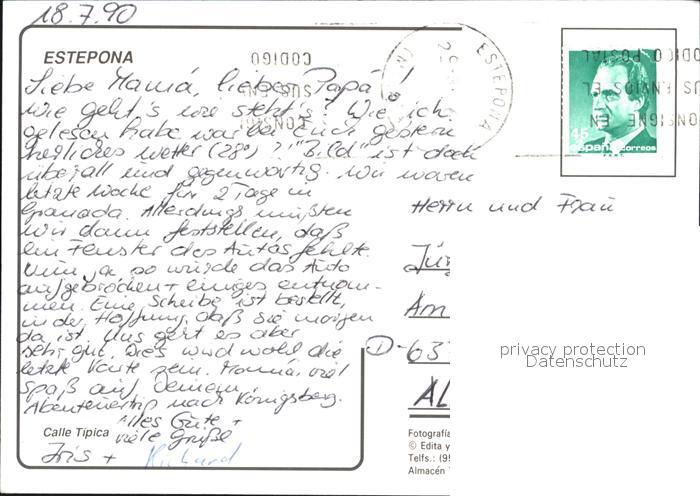 18.7.90
ESTEPONA
CODIGO
ESTEPONA
Liebe Mamá, lieber Papá!
wie geht's wie steht's? Wie ich
gelesen habe war bei Euch gestern
herrliches Wetter (28°)? "Bild" ist doch
überall und gegenwärtig. Wir waren
letzte Woche für 2 Tage in
Granada. Allerdings mußten
wir dann feststellen, daß
ein Fenster des Autos fehlte.
Nun ja so wurde das Auto
aufgebrochen + einiges entnom-
men. Eine Scheibe ist bestellt,
in der Hoffnung, daß sie morgen
da ist. Uns geht es aber
sehr gut. Dies wird wohl die
letzte Karte sein. Mamá, viel
Spaß auf Deinem
Abenteuertrip nach Königsberg.
Alles Gute +
viele Grüße
Iris + Richard
Calle Típica
45
españa correos
CONSIGNE EN
Herrn und Frau
Jür
Am
D-63
AL
privacy protection
Datenschutz
Fotografía
© Edita y
Telfs.: (95
Almacén